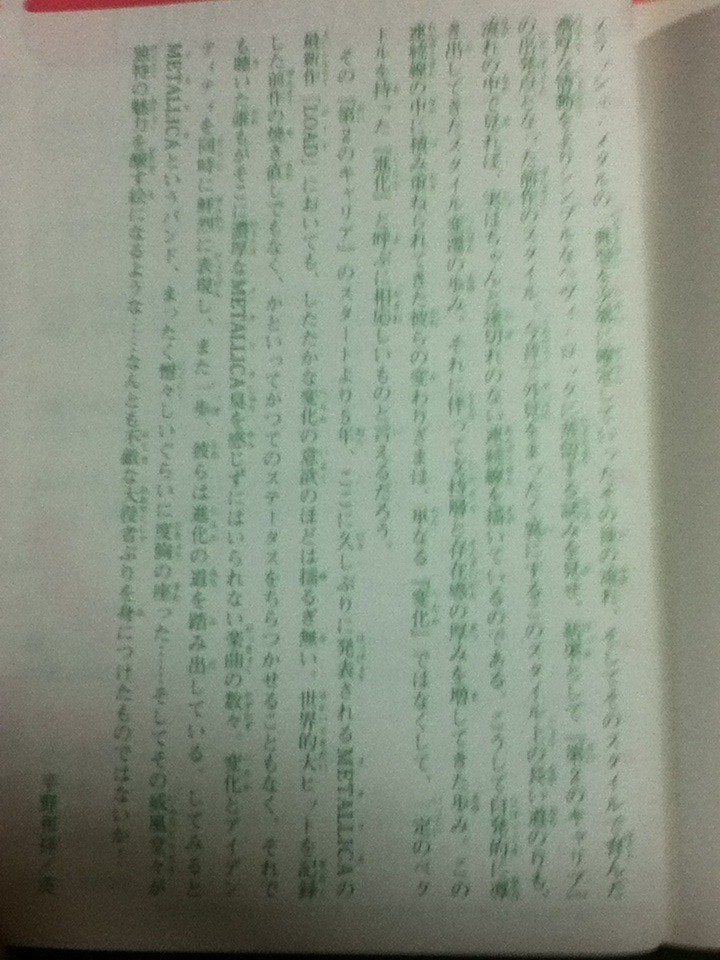 濃厚な情動をよりシンプルなヘヴィ・ロックに蒸留する試みを見せ、結果として『第2のキャリア』
の出発点となった前作のスタイル。今昔で外見をまったく異にするこのスタイル上の長い道のりも、
流れの中で見れば、実はちゃんと途切れのない連続線を描いているのである。こうして自発的に導
き出してきたスタイル変遷の歩み。それに伴って支持層と存在感の厚みを増してきた歩み。この
連続線の中に積み重ねられてきた彼らの変わりざまは、単なる『変化』ではなくして、一定のベク
トルを持った『進化』と呼ぶに相応しいものと言えるだろう。
その『第2のキャリア』のスタートより5年、ここに久しぶりに発表されるMETALLICAの
最新作『LOAD』においても、したたかな変化の意欲のほどは揺るぎ無い。世界的大ヒットを記録
した前作の焼き直しでもなく、かといってかつてのステータスをちらつかせることもなく、それで
も聴いた誰もがそこに濃厚なMETALLICA臭を感じずにはいられない楽曲の数々。変化とアイデン
ティティを同時に鮮烈に表現し、また一歩、彼らは進化の道を踏み出している。してみると
METALLICAというバンド、まったく憎々しいぐらいに度胸の座った……そしてその威風堂々が
独特の魅力を醸す絵になるような……なんとも不敵な大役者ぶりを身につけたものではないか！